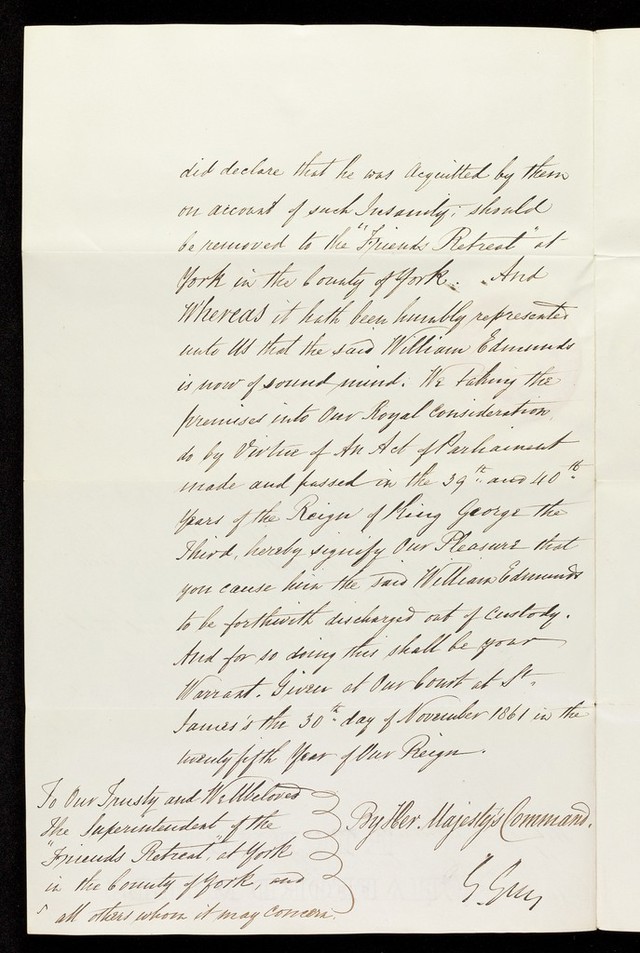 did declare that he was acquitted by them
on account of such Insanity; should
be removed to the "Friends Retreat" at
York in the County of York. And
Whereas it hath been humbly represented
unto Us that the said William Edmunds
is now of sound mind. We taking the
premises into Our Royal Consideration
do by Virtue of An Act of Parliament
made and passed in the 39th and 40th
Years of the Reign of King George the
Third, hereby signify Our Pleasure that
you cause him the said William Edmunds
to be forthwith discharged out of custody.
And for so doing this shall be your
Warrant. Given at Our Court at St.
James's the 30th day of November 1861 in the
twenty fifth Year of Our Reign.
To Our Trusty and Wellbeloved
The Superintendent of the
"Friends Retreat," at York
in the County of York, and
all others whom it may concern.
By Her Majesty's Command.
G. Grey